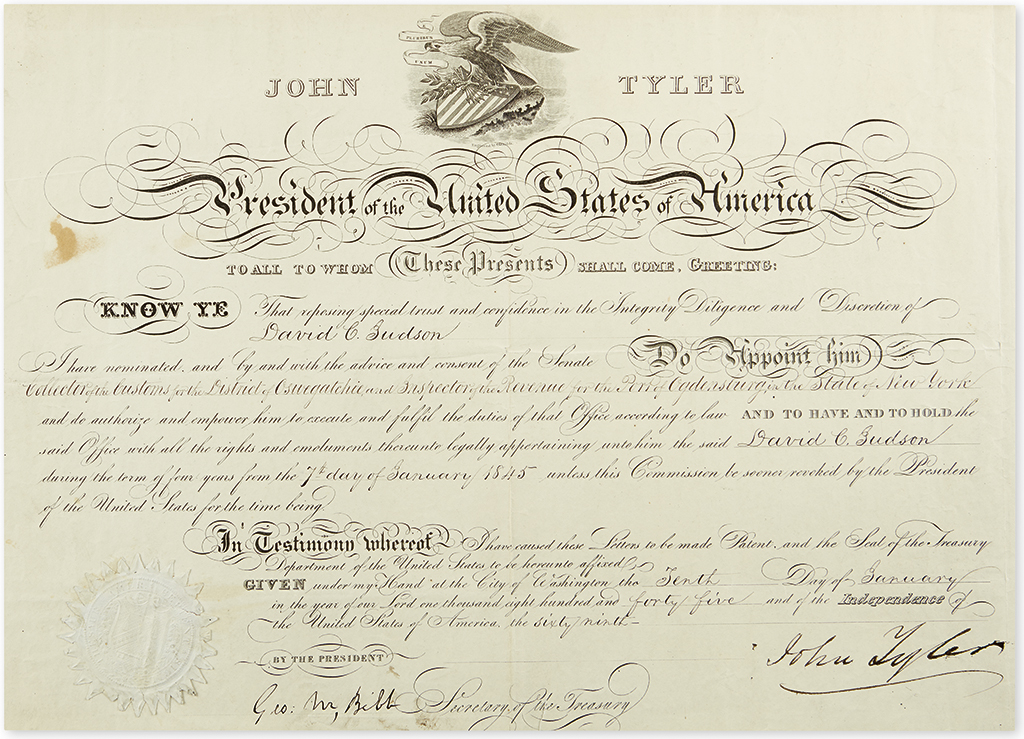 E PLURIBUS
UNUM
JOHN TYLER
President of the United States of America
TO ALL TO WHOM These Presents SHALL COME, GREETING:
KNOW YE That reposing special trust and confidence in the Integrity Diligence and Discretion of
David C. Judson
I have nominated, and by and with the advice and consent of the Senate Do Appoint him
Collector of the Customs for the District of Oswegatchie, and Inspector of the Revenue for the Port of Ogdensburg, in the State of New York
and do authorize and empower him to execute and fulfil the duties of that Office according to law AND TO HAVE AND TO HOLD the
said Office with all the rights and emoluments thereunto legally appertaining unto him the said David C. Judson
during the term of four years from the 7th day of January 1845 unless this Commission be sooner revoked by the President
of the United States for the time being.
In Testimony whereof I have caused these Letters to be made Patent, and the Seal of the Treasury
Department of the United States to be hereunto affixed
GIVEN under my Hand at the City of Washington the Tenth Day of January
in the year of our Lord one thousand eight hundred and forty five and of the Independence of
the United States of America, the sixty ninth
John Tyler
BY THE PRESIDENT
Geo: M, Bibb Secretary of the Treasury